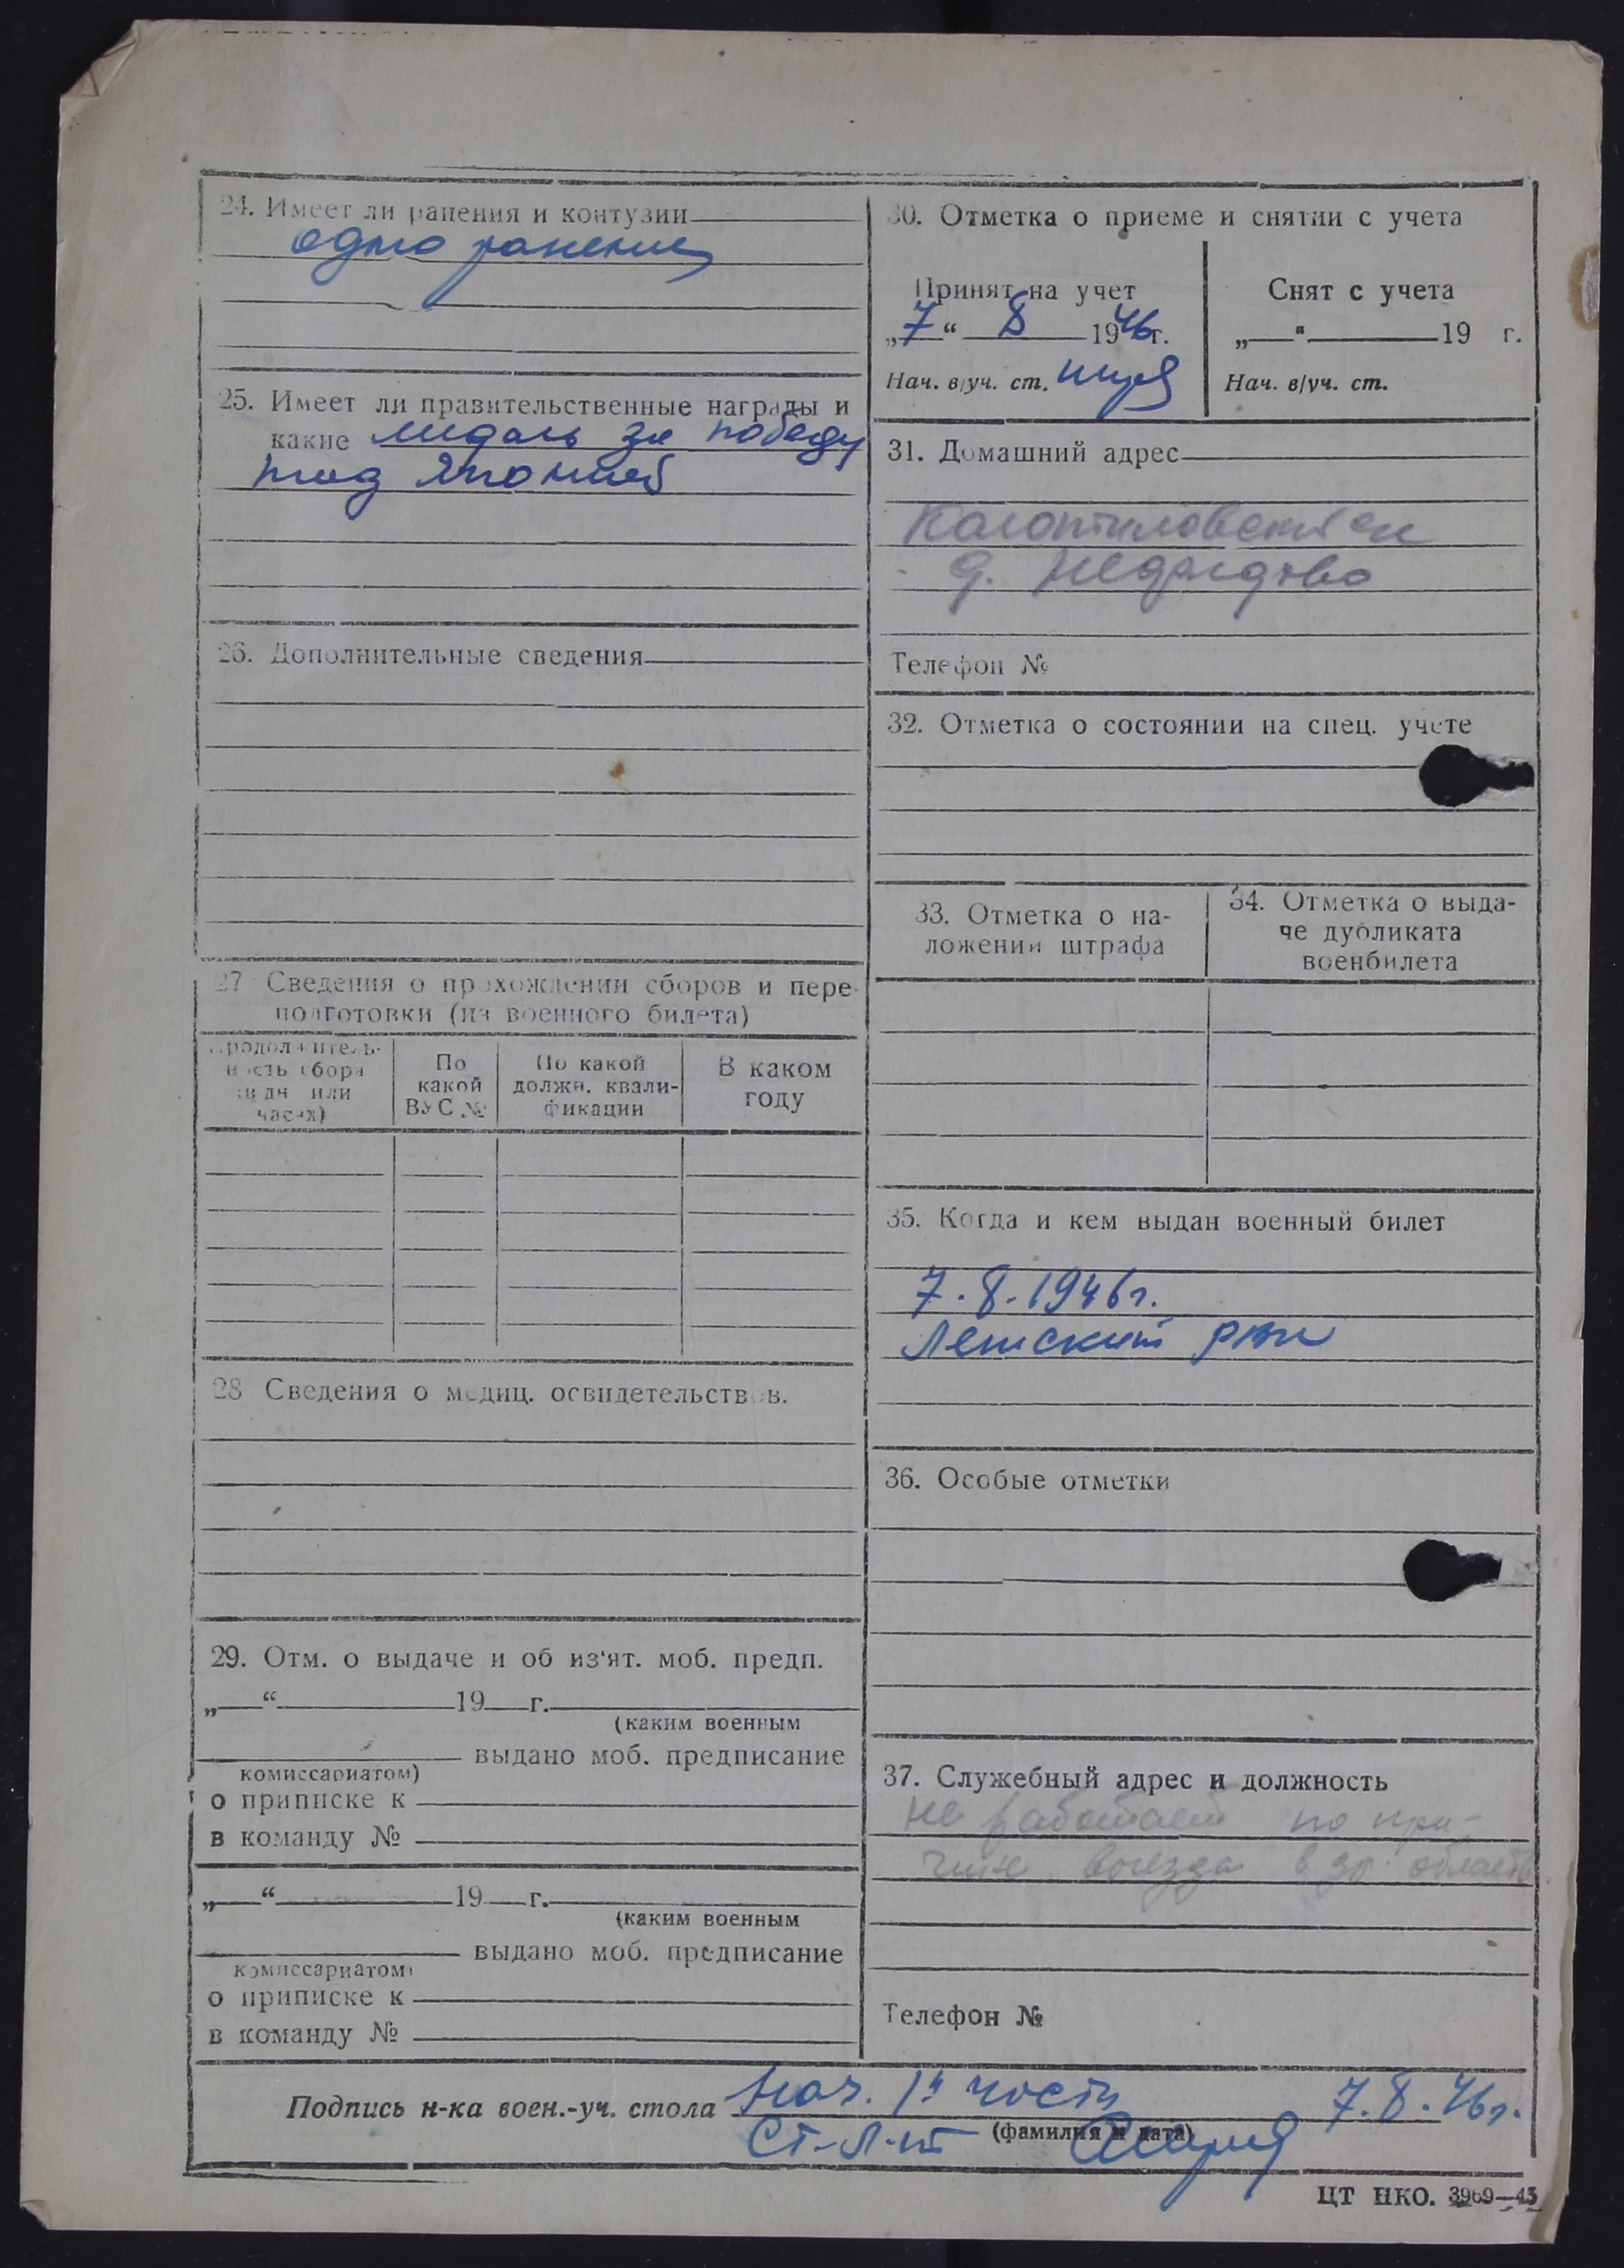 24. Имеет ли ранения и контузии
одно ранение
25. Имеет ли правительственные награды и
какие медаль за победу
над Японией
26. Дополнительные сведения
27 Сведения о прохождении сборов и пере-
подготовки (из военного билета)
Продолжитель-
ность сбора
(в дн или
часах)
По
какой
ВУС №
По какой
должн. квали-
фикации
В каком
году
28 Сведения о медиц. освидетельствов.
29. Отм. о выдаче и об из'ят. моб. предп.
„ “ 19 г.
(каким военным
выдано моб. предписание
комиссариатом)
о приписке к
в команду №
„ “ 19 г.
(каким военным
выдано моб. предписание
комиссариатом)
о приписке к
в команду №
30. Отметка о приеме и снятии с учета
Принят на учет
„7“ 8 1946г.
Нач. в/уч. ст.
Снят с учета
„ “ 19 г.
Нач. в/уч. ст.
31. Домашний адрес
д.
Телефон №
32. Отметка о состоянии на спец. учете
33. Отметка о на-
ложении штрафа
34. Отметка о выда-
че дубликата
военбилета
35. Когда и кем выдан военный билет
7.8.1946г.
Ленский РВК
36. Особые отметки
37. Служебный адрес и должность
не работает по при-
чине выезда в др. область
Телефон №
Подпись н-ка воен.-уч. стола Нач. 1й части 7.8.46г.
(фамилия и дата)
Ст. л-т
ЦТ НКО. 3969—45